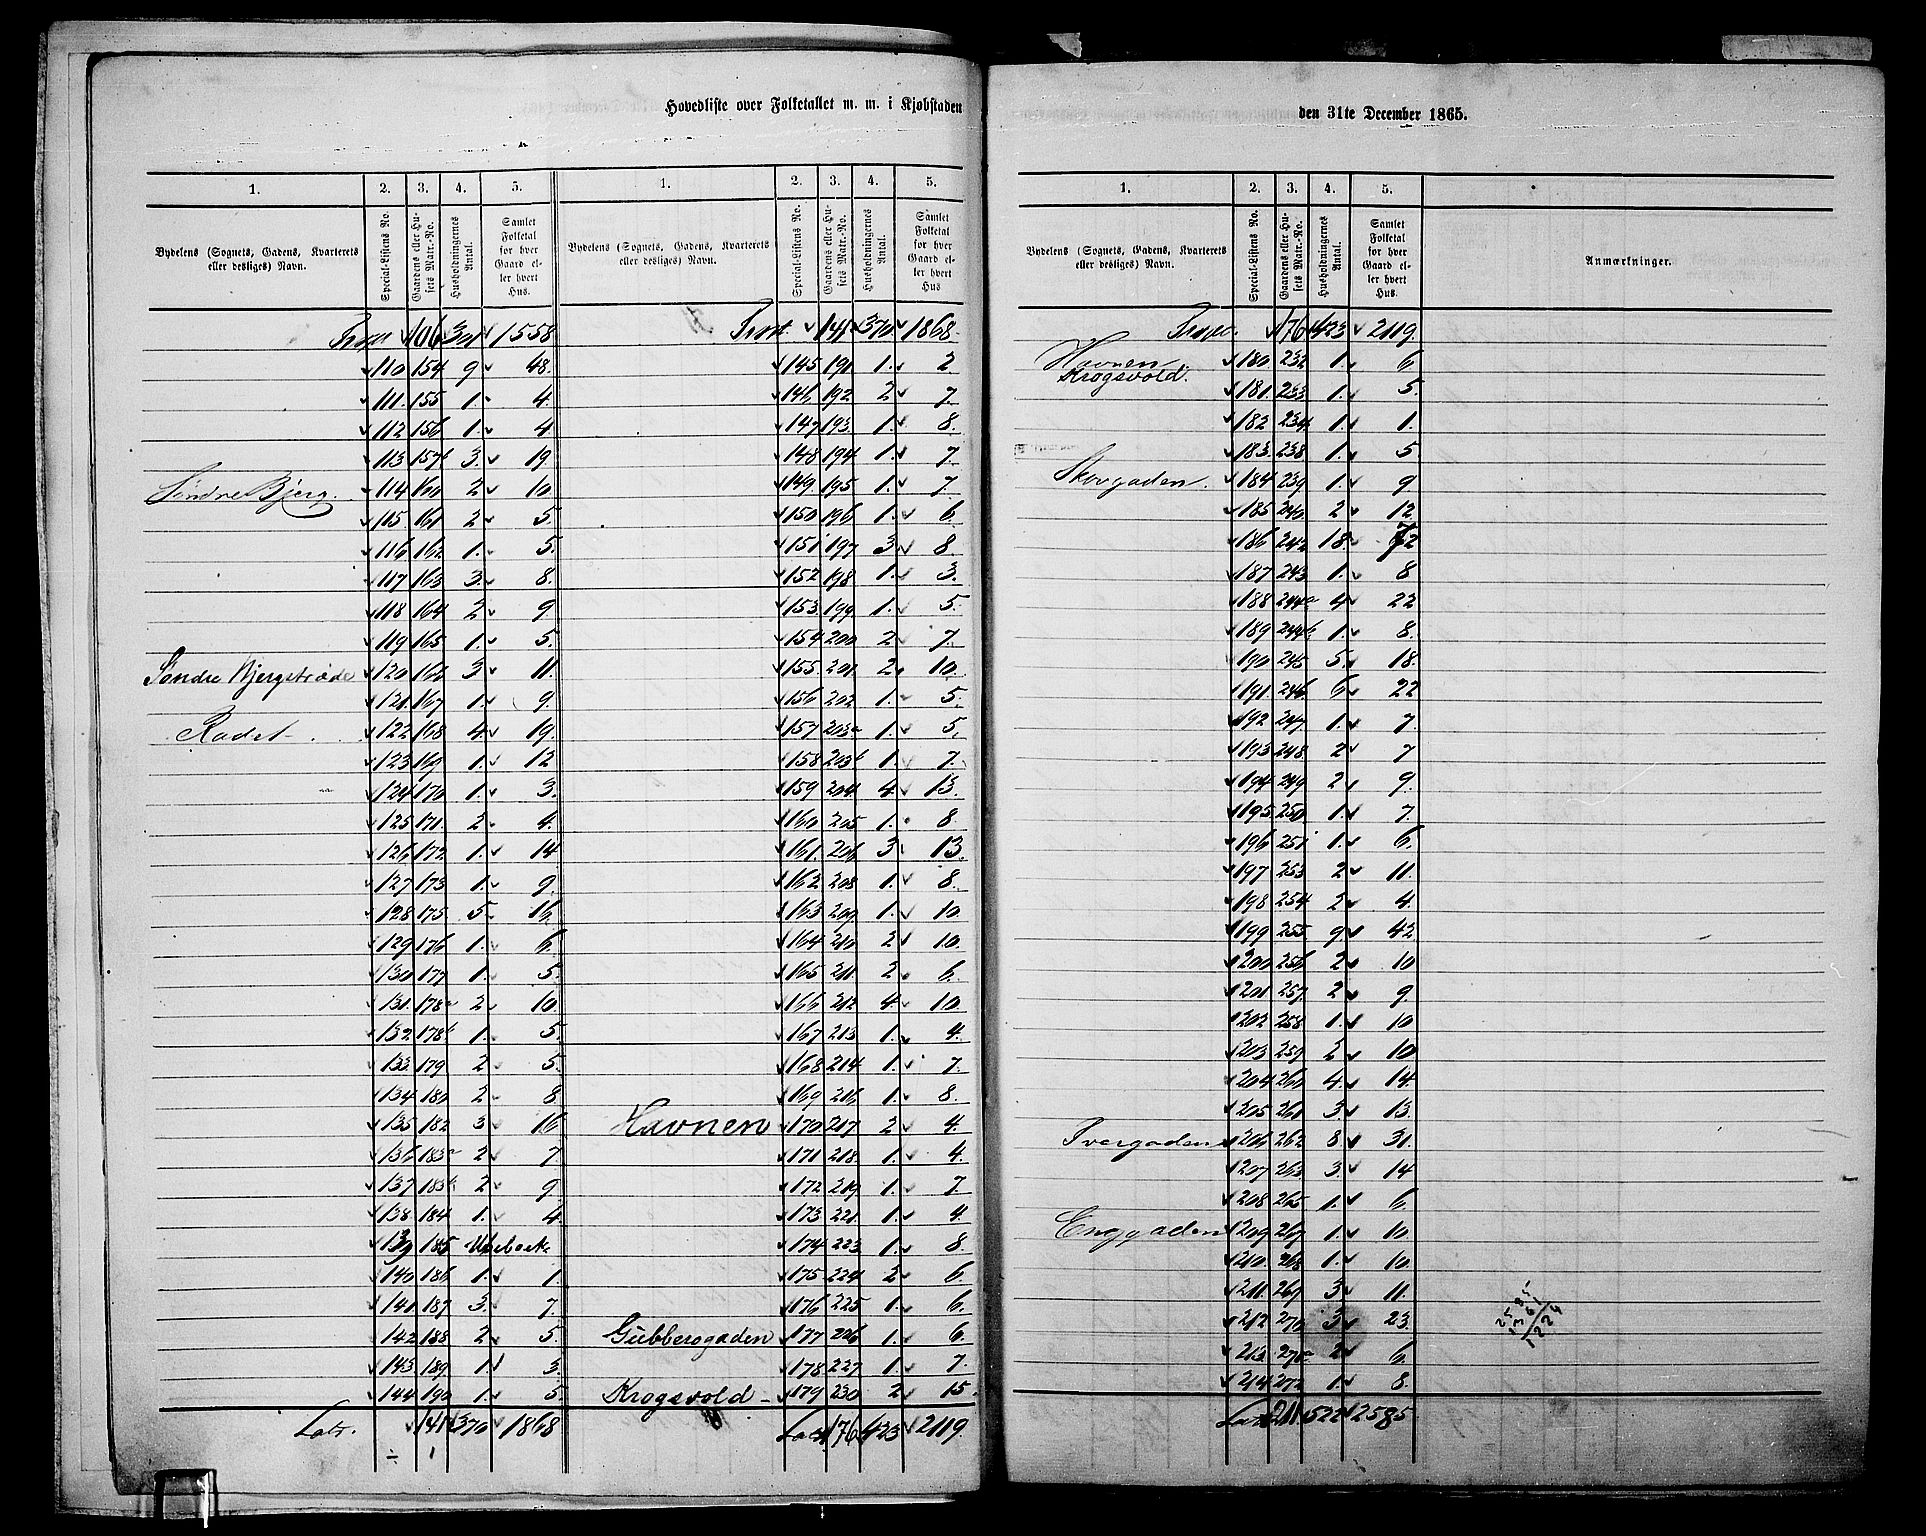 Hovedliste over Folketallet m. m. i Kjøbstaden
1. 2. 3. 4. 5. 1. 2. 3. 4. 5.
Bydelens (Sognets, Gadens, Kvarterets eller desliges) Navn. Special-Listens No. Gaardens eller Husets Matr.-No. Husholdningernes Antal. Samlet Folketal for hver Gaard eller hvert Hus.
Bydelens (Sognets, Gadens, Kvarterets eller desliges) Navn. Special-Listens No. Gaardens eller Husets Matr.-No. Husholdningernes Antal. Samlet Folketal for hver Gaard eller hvert Hus
106 301 1558
110 154 9 48.
111. 155 1. 4.
112 156 1. 4
113 157b 3. 19.
Søndre Bjerg. 114 160 2 10
115 161 2 5.
116 162 1. 5.
117 163 3. 8.
118 164 2 9
119 165 1. 5.
Søndre Bjergstræde 120 166 3 11.
121 167 1. 9.
Rødet 122 168 4 19.
123 169 1. 12
124 170 1. 3.
125 171. 2 4.
126 172 1. 14
127 173 1. 9.
128 175 5 16.
129 176 1. 6.
130 177 1. 5.
131. 178a 2 10.
132 178b 1. 5.
133 179 2 5.
134 180 2 8.
135 182 3 16
136 183a 2 7.
137 183b 2 9.
138 184 1. 4.
139 185 Ubeboet
140 186 1. 1.
141 187 3. 7.
142 188 2 5.
143 189 1. 3.
144 190 1. 5.
Lats. 141 370 1868
÷ 1
Trsp. 141 370 1868
145 191 1. 2
146 192 2 7.
147 193. 1. 8.
148 194 1. 7.
149. 195 1. 7.
150 196 1. 6.
151 197 3 8.
152 198 1. 3.
153. 199 1. 5.
154 200 2 7.
155. 201 2 10.
156 202 1. 5.
157 203a 1. 5.
158 203b 1. 7.
159 204 4 13.
160 205 1. 8.
161. 206 3 13.
162 208 1. 8.
163 209 1. 10.
164 210 2 10.
165 211. 2 6.
166 212 4. 10.
167 213 1. 4.
168 214 1. 7.
169 216 1. 8.
Havnen 170 217 2 4.
171 218. 1. 4.
172 219 1. 7.
173 221. 1. 4.
174 223 1. 8.
175 224 2 6.
176 225 1. 6.
Gubberogaden 177 226 1. 6.
178 227 1. 7.
Krogsvold 179 230 2 15.
Lats. 176 423 2119.
den 31te December 1865.
1. 2. 3. 4. 5.
Bydelens (Sognets, Gadens, Kvarterets eller desliges) Navn. Special-Listens No. Gaardens eller Husets Matr.-No. Husholdningernes Antal. Samlet Folketal for hver Gaard eller hvert Hus. Anmærkninger.
176 423 2119.
Havnen 180 232 1. 6.
Krogsvold. 181. 233 1. 5.
182 234 1. 1.
183. 238 1. 5.
Skovgaden. 184 239 1. 9
185 240 2 12
186 242 18. 72
187 243 1. 8
188 244a 4 22
189 244b 1. 8.
190 245 5. 18.
191. 246 6 22
192 247 1. 7.
193 248 2 7
194 249 2 9.
195 250 1. 7.
196 251 1. 6.
197 253 2 11.
198 254 2 4.
199 255 9 42.
200 256 2 10
201 257 2 9.
202 258 1. 10
203 259 2 10
204 260 4. 14.
205 261 3. 13.
Tvergaden 206 262 8. 31.
207 263 3. 14
208 265 1. 6.
Enggaden 209 267 1. 10
210 268 1. 10.
211. 269 3 11.
212 270 3 23.
213 270a 2 6.
214 272 1. 8.
211 522 2585
2585
1361
1224